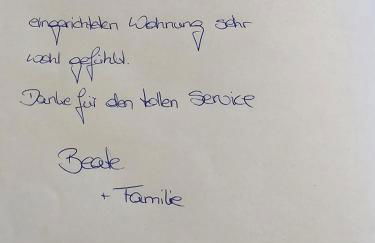 eingerichteten Wohnung sehr
wohl gefühlt.
Danke für den tollen Service
Beate
+ Familie